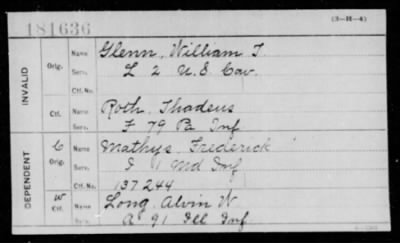 181636
(3-H-4)
INVALID
Orig.
Name Glenn, William T.
Serv. L 2 U.S. Cav.
Ctf. No.
Ctf.
Name Roth, Thadeus
Serv. F 79 Pa Inf
DEPENDENT
C
Orig.
Name Mathys Frederick
Serv. I 1 Md Inf
Ctf. No. 137244
W
Ctf.
Name Long, Alvin W.
Serv. A. 91 Ill Inf